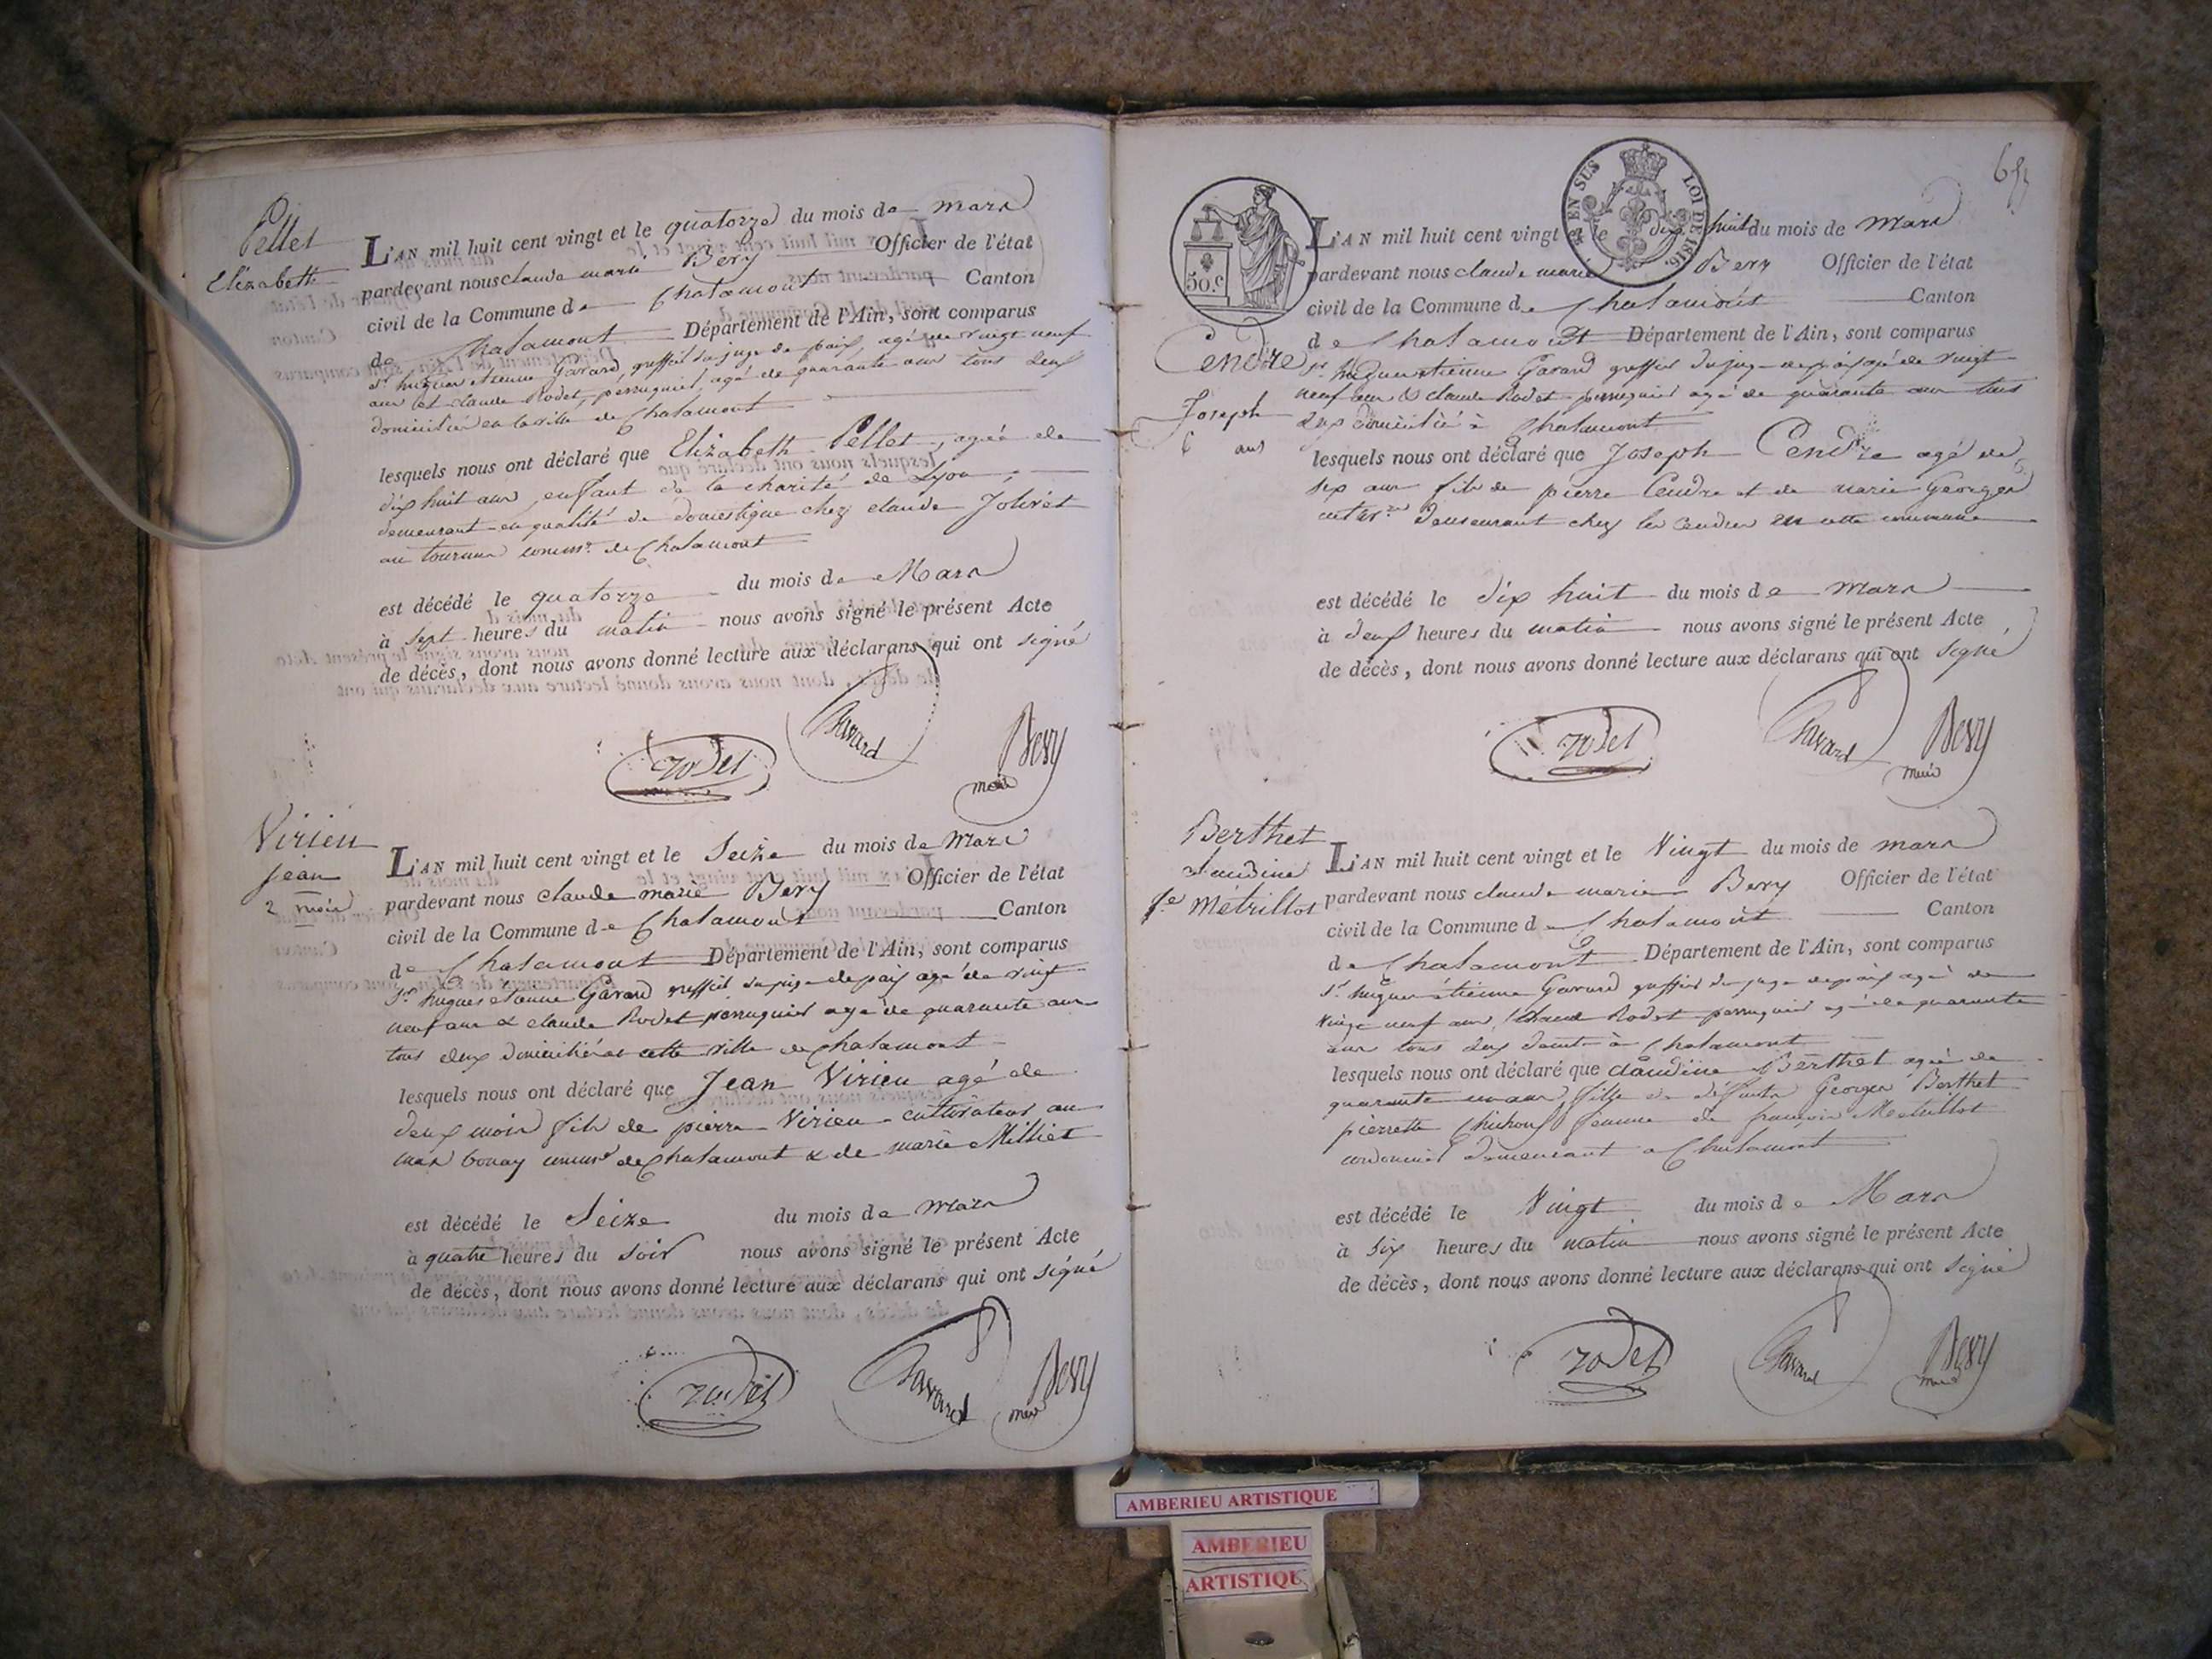 Pellet
Elizabeth
L'AN mil huit cent vingt et le quatorze du mois de mars
pardevant nous claude marie Bevy Officier de l'état
civil de la Commune de Chalamont Canton
de Chalamont Département de l'Ain, sont comparus
Sr hugues etienne Gavard, greffier du juge de paix, agé de vingt neuf
ans et claude Rodet, perruquier, agé de quarante ans tous deux
domiciliés en la ville de Chalamont
lesquels nous ont déclaré que Elizabeth Pellet, agée de
dix huit ans, enfant de la charité de Lyon,
demeurant en qualité de domestique chez claude Jolivet
au tournus comme de Chalamont
est décédé le quatorze du mois de Mars
à sept heures du matin nous avons signé le présent Acte
de décès, dont nous avons donné lecture aux déclarans qui ont signé
rodet Gavard Bevy
maire
Virieu
jean
2 mois
L'AN mil huit cent vingt et le Seize du mois de Mars
pardevant nous claude marie Bevy Officier de l'état
civil de la Commune de Chalamont Canton
de Chalamont Département de l'Ain, sont comparus
Sr hugues etienne Gavard greffier du juge de paix agé de vingt
neuf ans & claude Rodet perruquier agé de quarante ans
tous deux domiciliés en cette ville de Chalamont
lesquels nous ont déclaré que Jean Virieu agé de
deux mois fils de pierre Virieu cultivateur au
mas bonay comme de Chalamont & de marie Milliet
est décédé le Seize du mois de mars
à quatre heures du soir nous avons signé le présent Acte
de décès, dont nous avons donné lecture aux déclarans qui ont signé
rodet Gavard Bevy
maire
EN SUS LOI DE 1816
50.c
Cendre
Joseph
6 ans
L'AN mil huit cent vingt et le dix huit du mois de Mars
pardevant nous claude marie Bevy Officier de l'état
civil de la Commune de Chalamont Canton
de Chalamont Département de l'Ain, sont comparus
Sr hugues etienne Gavard greffier du juge de paix agé de vingt
neuf ans & claude Rodet perruquier agé de quarante ans tous
deux domiciliés à Chalamont
lesquels nous ont déclaré que Joseph Cendre agé de
six ans fils de pierre Cendre et de marie Georges
cultivrs demeurant chez les cendres en cette commune
est décédé le dix huit du mois de mars
à deux heures du matin nous avons signé le présent Acte
de décès, dont nous avons donné lecture aux déclarans qui ont signé
rodet Gavard Bevy
maire
Berthet
claudine
fe Métrillot
L'AN mil huit cent vingt et le Vingt du mois de mars
pardevant nous claude marie Bevy Officier de l'état
civil de la Commune de Chalamont Canton
de Chalamont Département de l'Ain, sont comparus
Sr hugues étienne Gavard greffier du juge de paix agé de
vingt neuf ans, claude Rodet perruquier agé de quarante
ans tous deux domt à Chalamont
lesquels nous ont déclaré que claudine Berthet agée de
quarante un ans, fille de défunts Georges Berthet
pierrette femme de françois Metrillot
cordonnier demeurant à Chalamont
est décédé le Vingt du mois de Mars
à Six heures du matin nous avons signé le présent Acte
de décès, dont nous avons donné lecture aux déclarans qui ont signé
rodet Gavard Bevy
maire
AMBERIEU ARTISTIQUE
AMBERIEU
ARTISTIQU